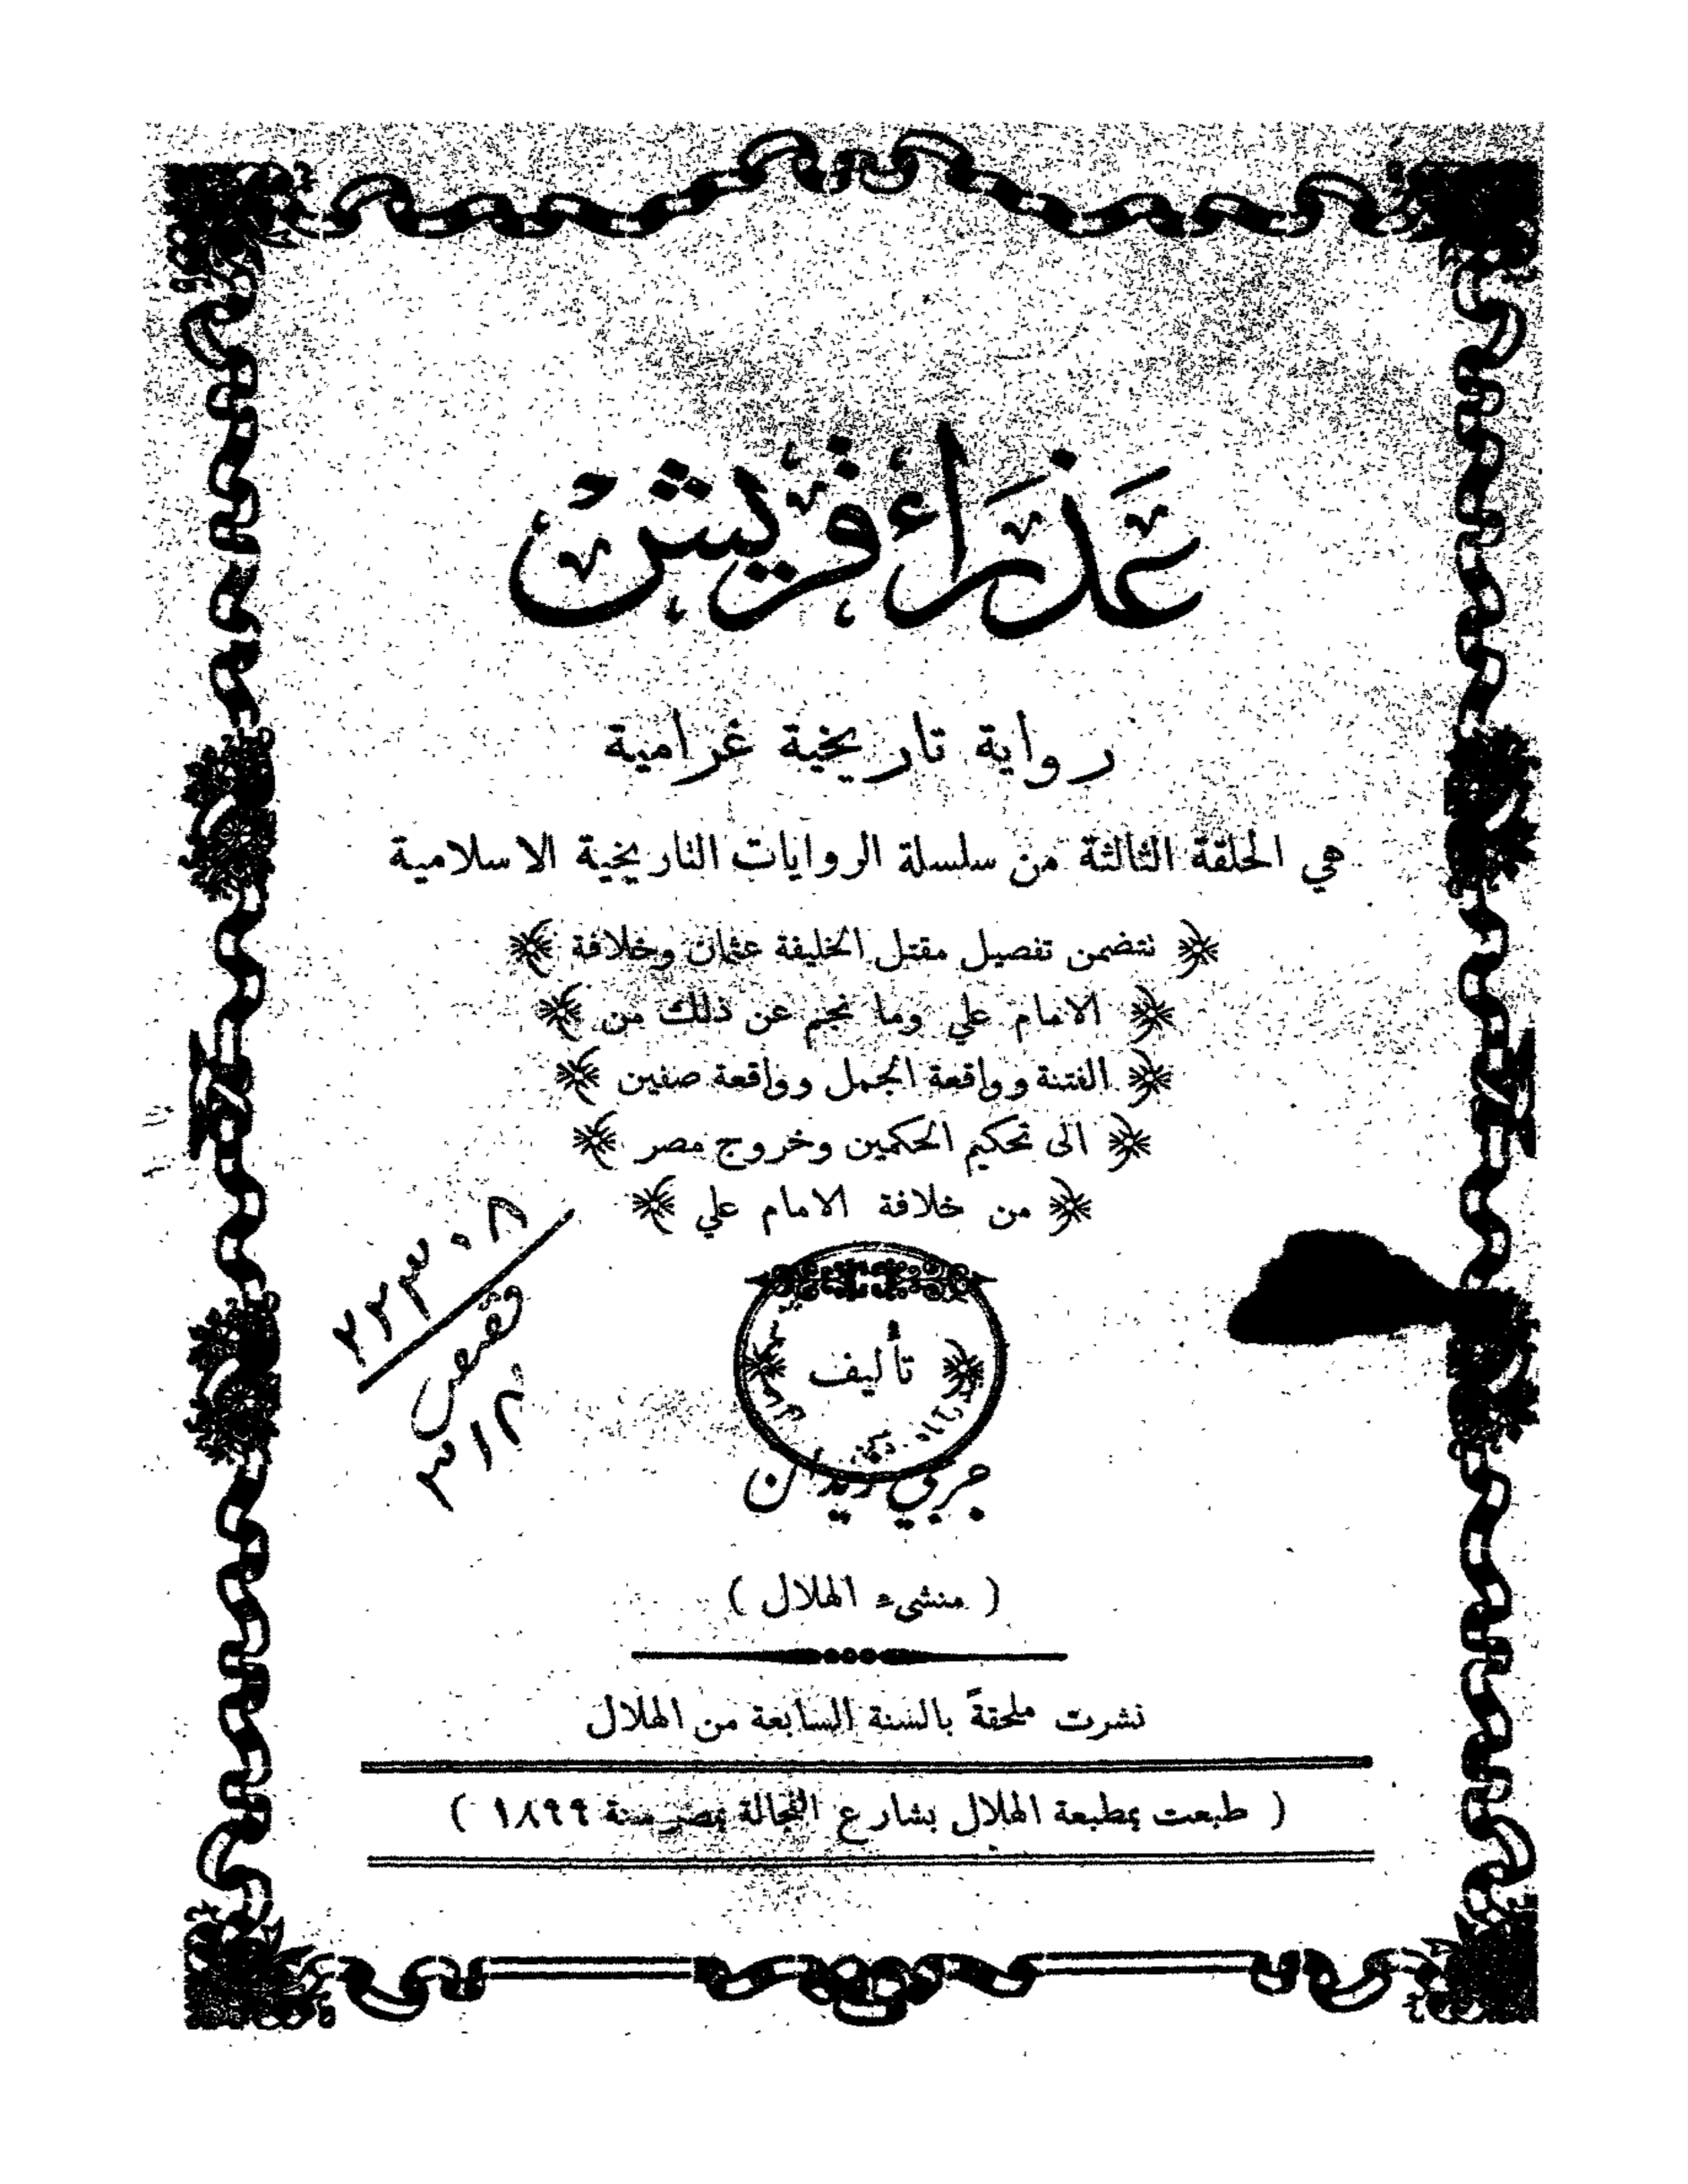 عذراء قريش
رواية تاريخية غرامية
هي الحلقة الثالثة من سلسلة الروايات التاريخية الاسلامية
نتضمن تفصيل مقتل الخليفة عثمان وخلافة
الامام علي وما نجم عن ذلك من
الفتنة وواقعة الجمل وواقعة صفين
الى تحكيم الحكمين وخروج مصر
من خلافة الامام علي
٢٢٣٠٨
قصص
٣١٢
تأليف
جرجي زيدان
( منشىء الهلال )
نشرت ملحقةً بالسنة السابعة من الهلال
( طبعت بمطبعة الهلال بشارع الفجالة بمصر سنة ١٨٩٩ )